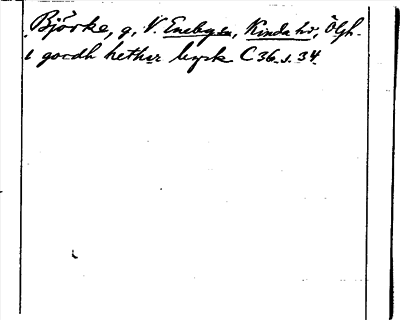 Björke, g, V. Eneby sn, Kinda hd, Ögh.
i gordh hether byrk C 36 s. 34.